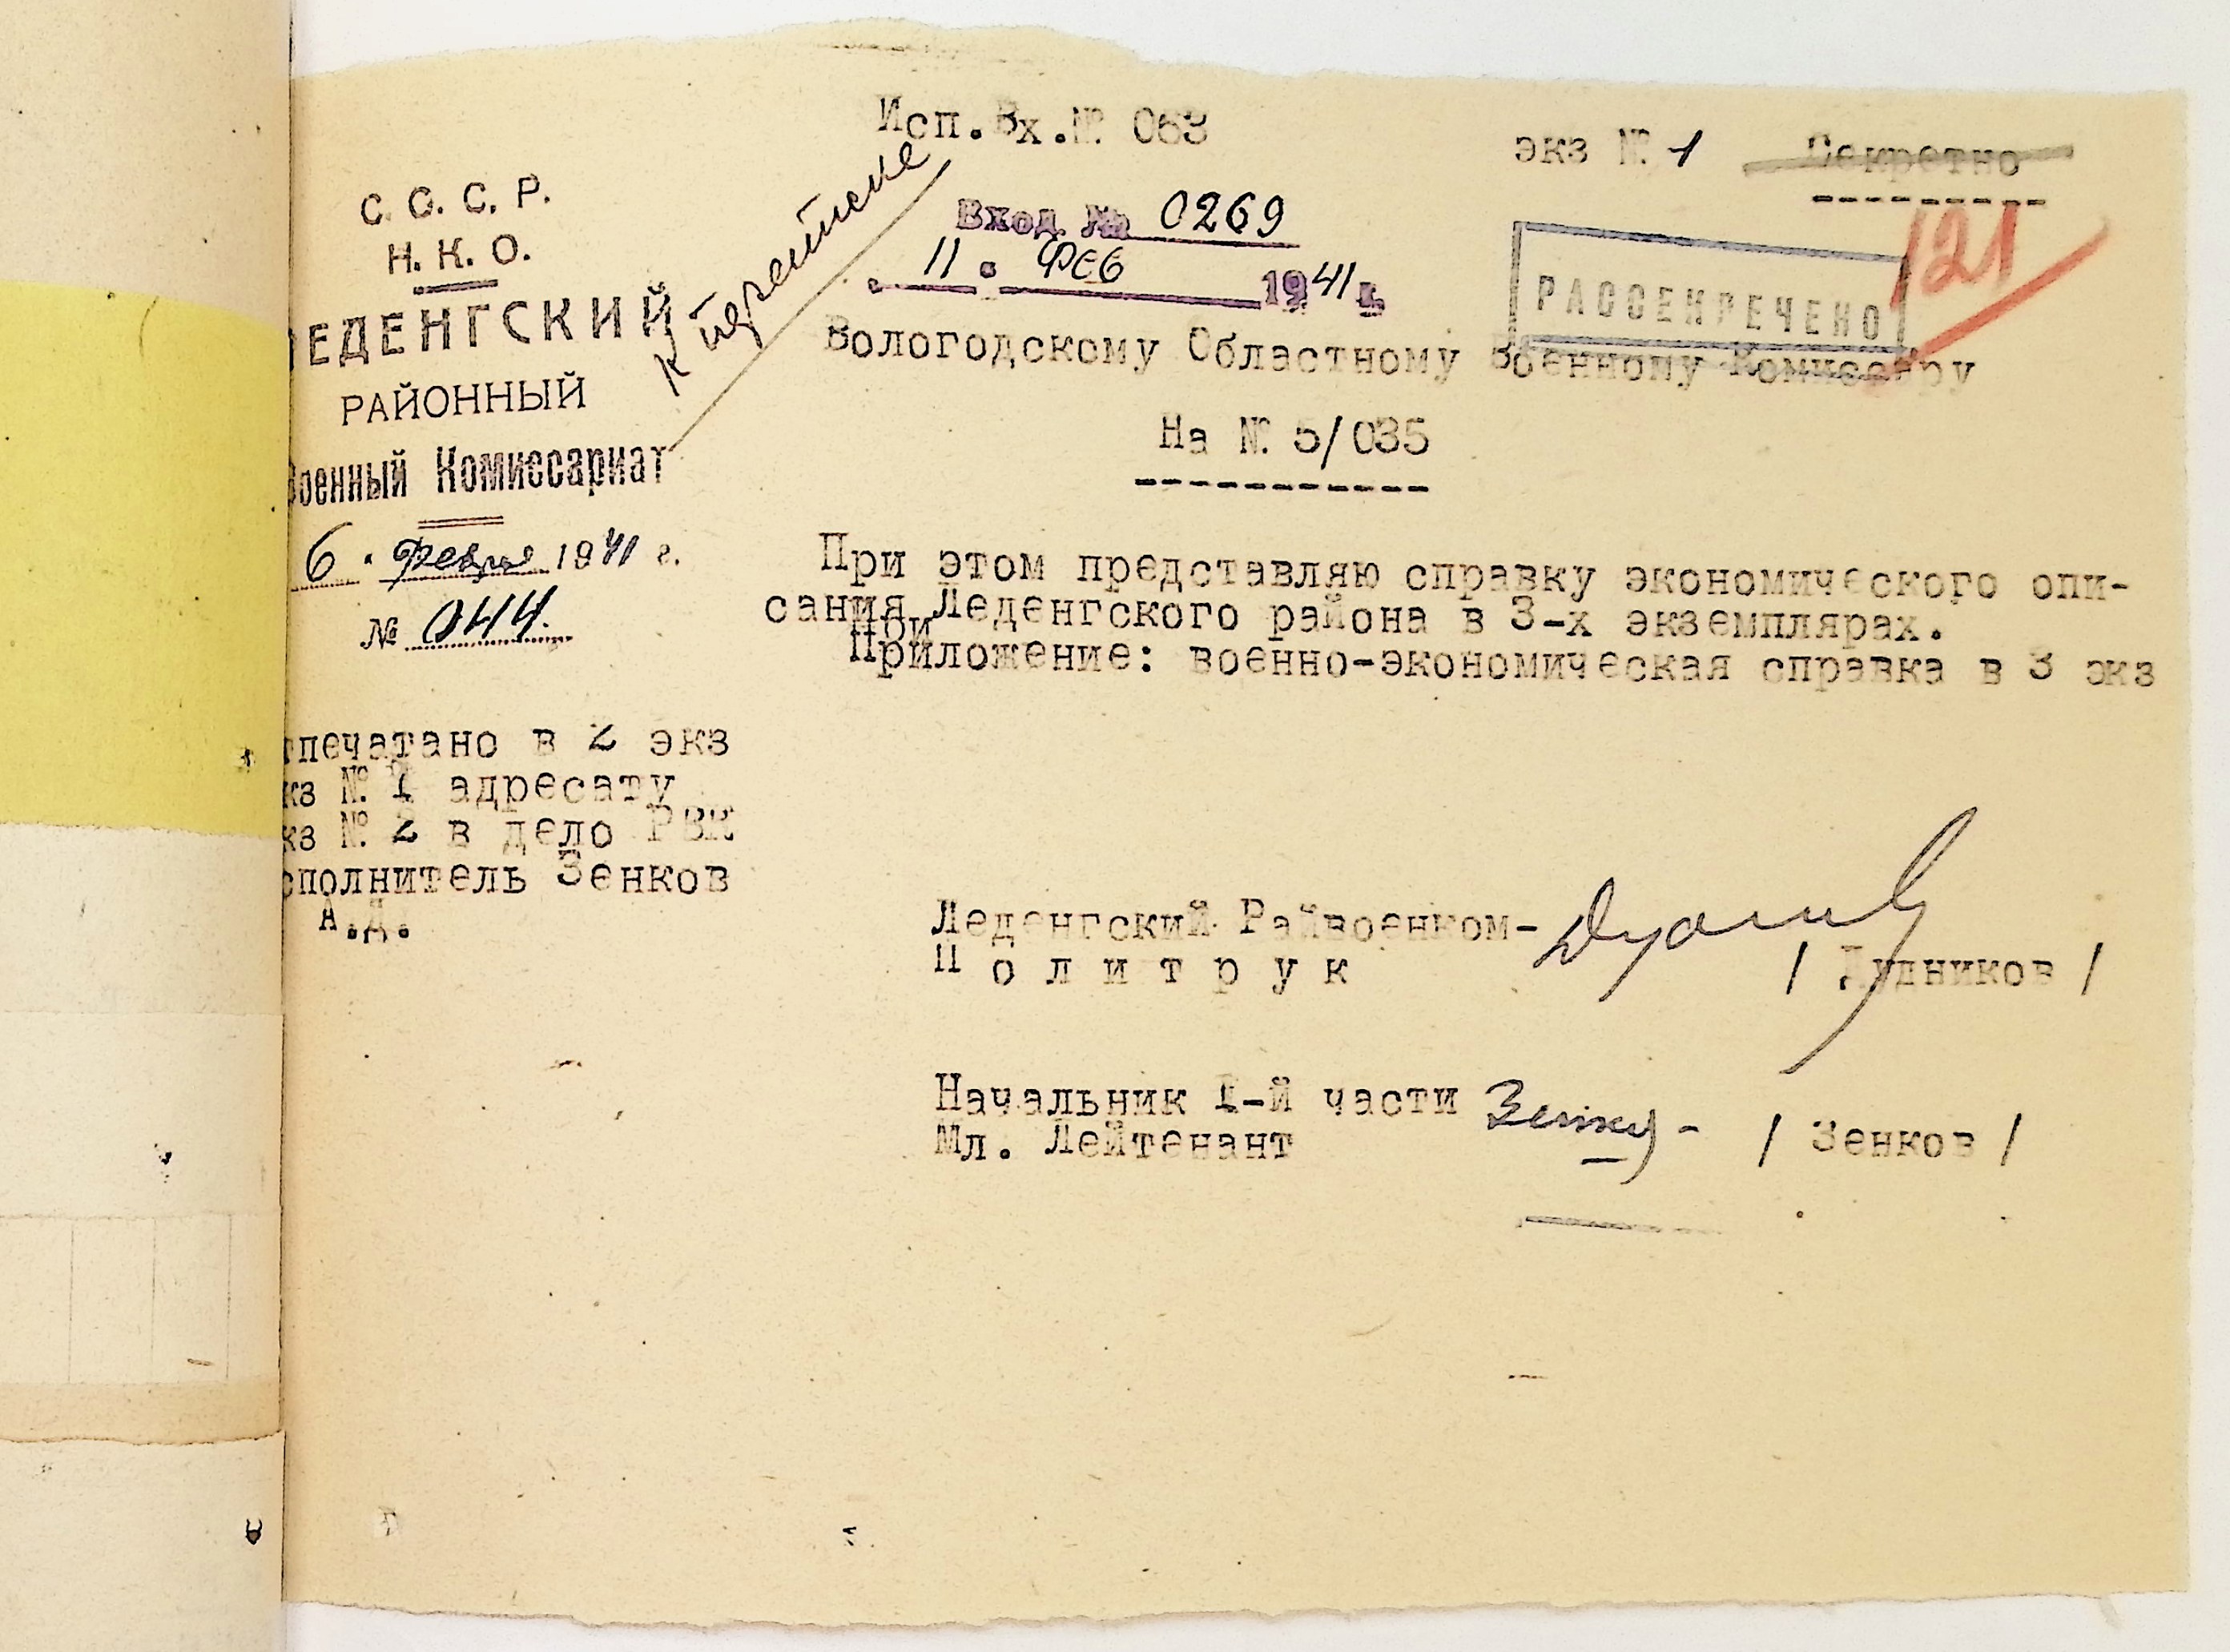 Исп.Вх.№ 063
экз № 1 Секретно
С. С. С. Р.
Н. К. О.
ЕДЕНГСКИЙ
РАЙОННЫЙ
Военный Комиссариат
6 . Февра 1941 г.
№ 044.
к переписке
Вход. № 0269
11 . Фев 1941 г.
РАССЕКРЕЧЕНО
121
Вологодскому Областному Военному Комиссару
На № 5/035
При этом представляю справку экономического опи-
сания Леденгского района в 3-х экземплярах.
При
Приложение: военно-экономическая справка в 3 экз
тпечатано в 2 экз
кз № 1 адресату
кз № 2 в дело РВК
сполнитель Зенков
А.Д.
Леденгский Райвоенком-
Политрук / Дудников /
Начальник I-й части
Мл. Лейтенант / Зенков /